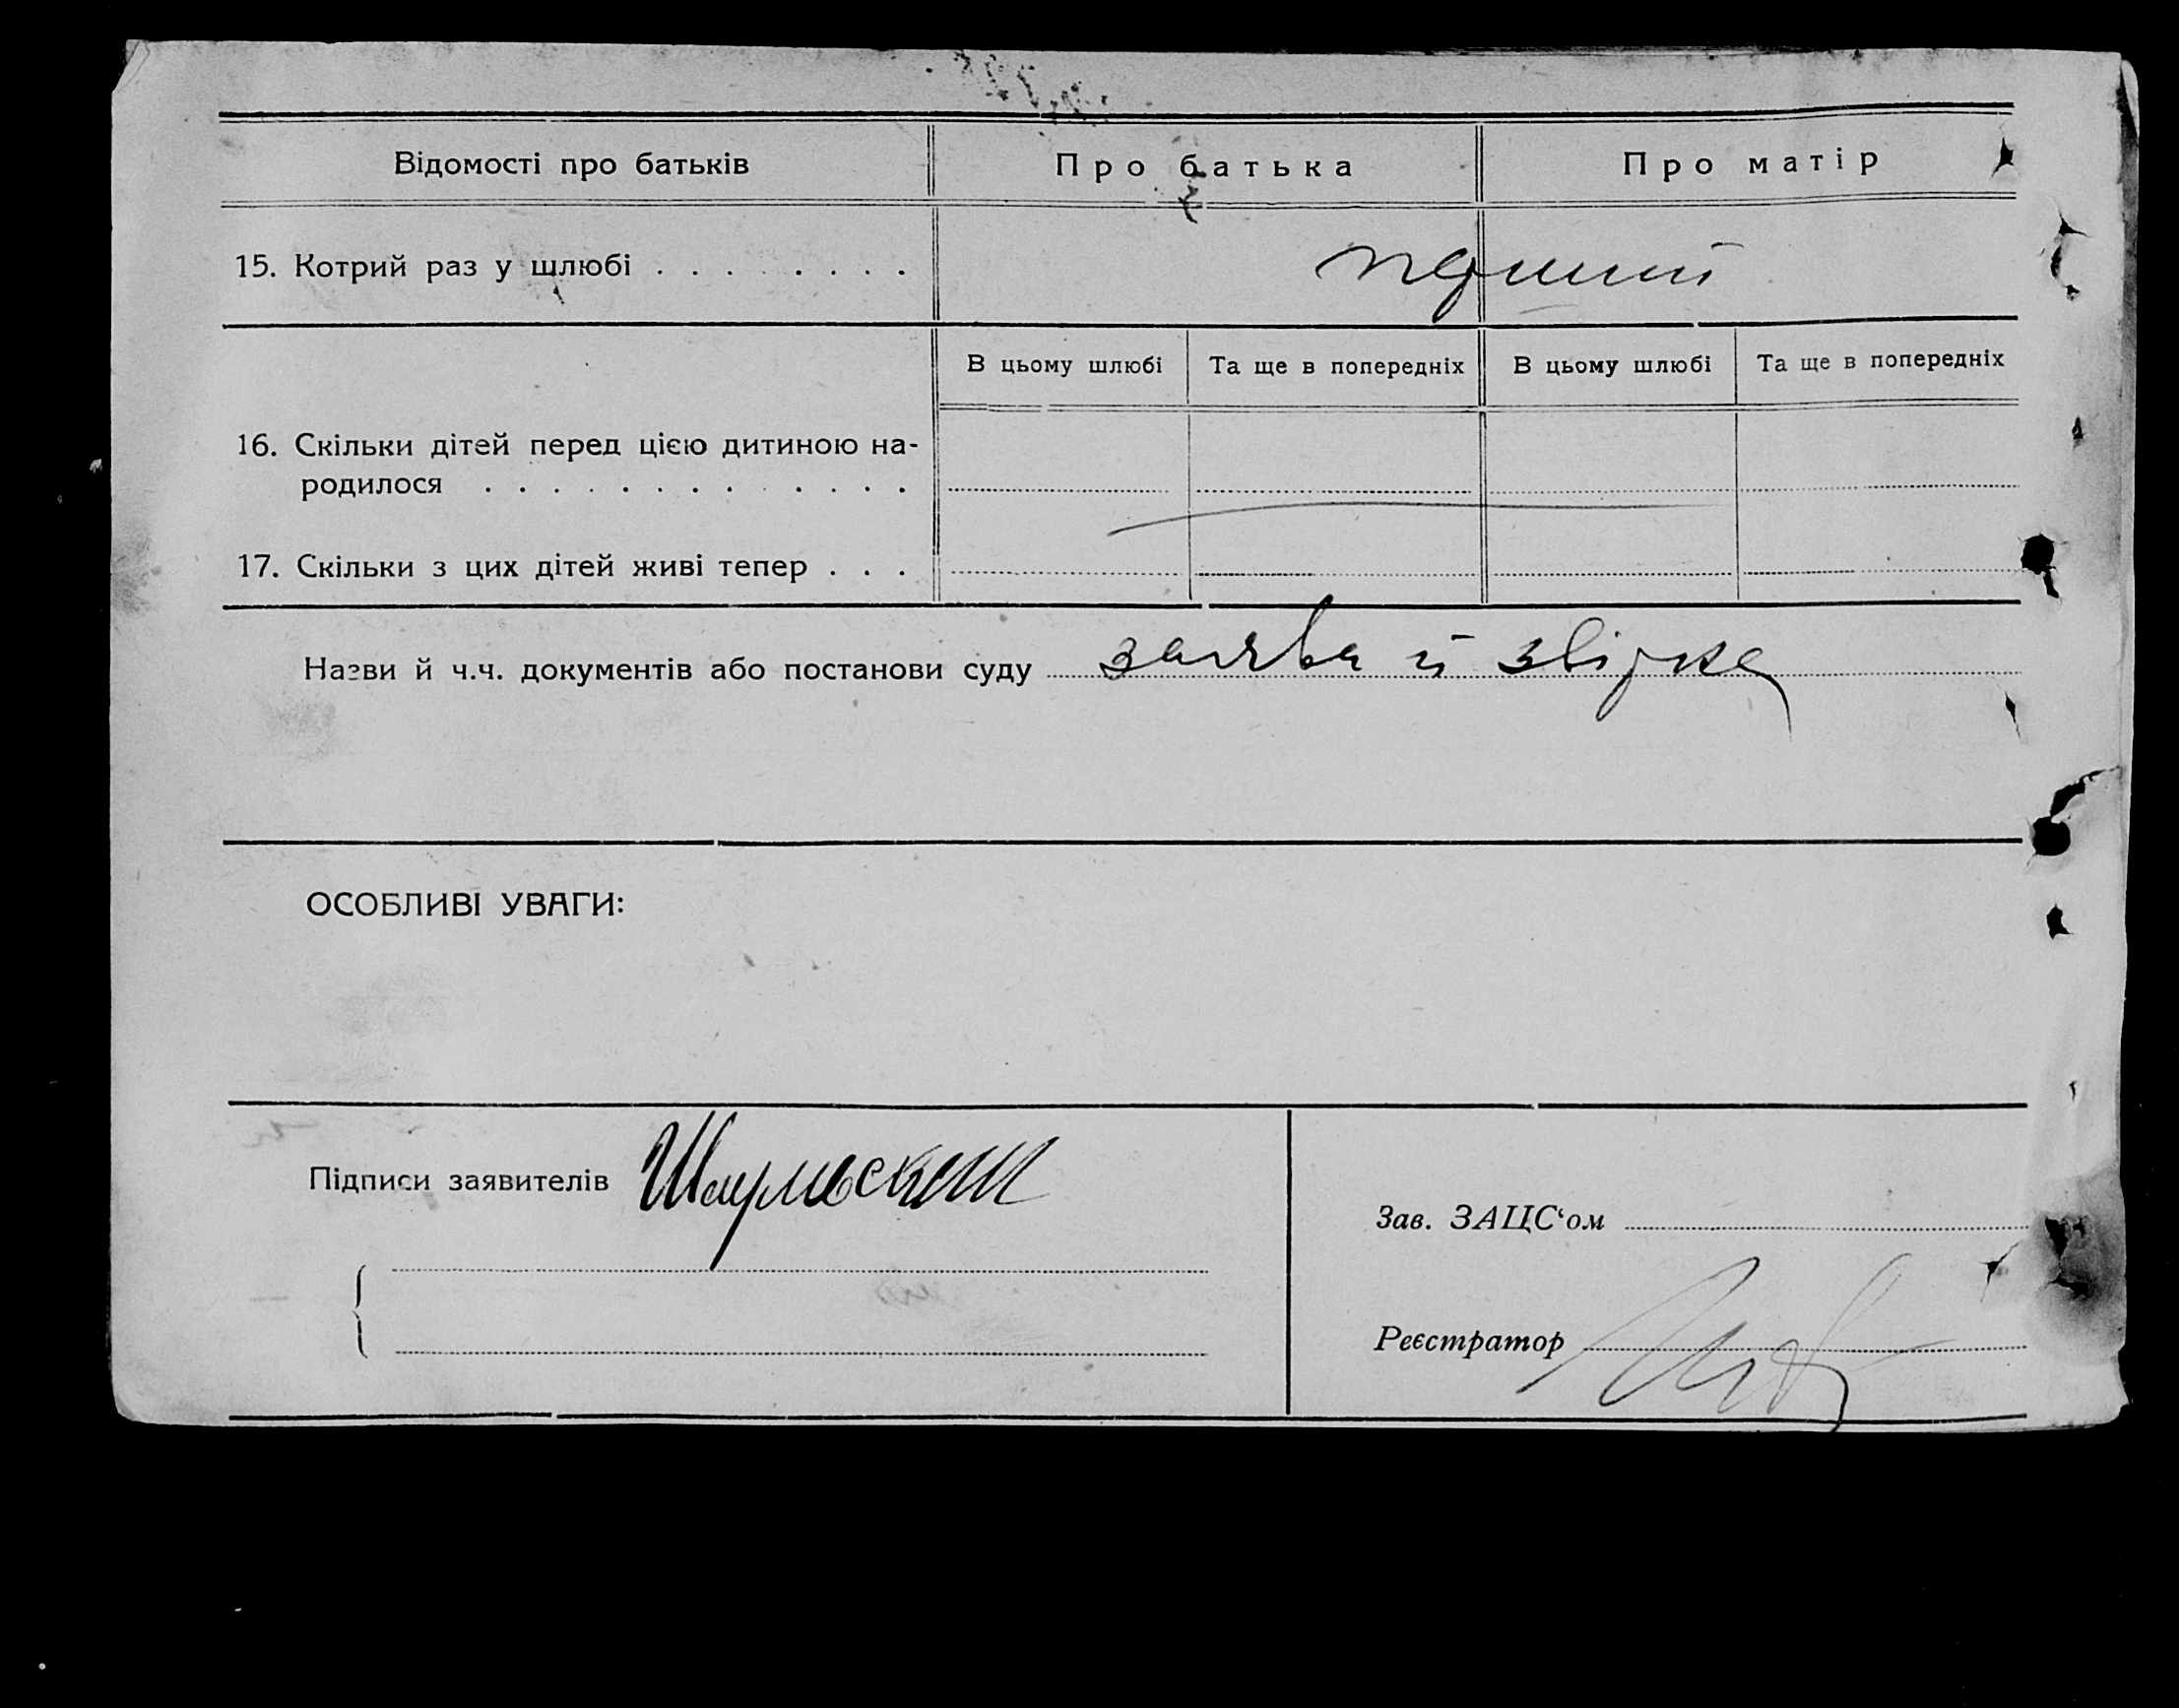 Відомості про батьків Про батька Про матір
15. Котрий раз у шлюбі . . . . . . . . перший
В цьому шлюбі Та ще в попередніх В цьому шлюбі Та ще в попередніх
16. Скільки дітей перед цією дитиною на-
родилося . . . . . . . . . . . .
17. Скільки з цих дітей живі тепер . . .
Назви й ч.ч. документів або постанови суду заява й звірка
ОСОБЛИВІ УВАГИ:
Підписи заявителів
Зав. ЗАЦС‘ом
Реєстратор